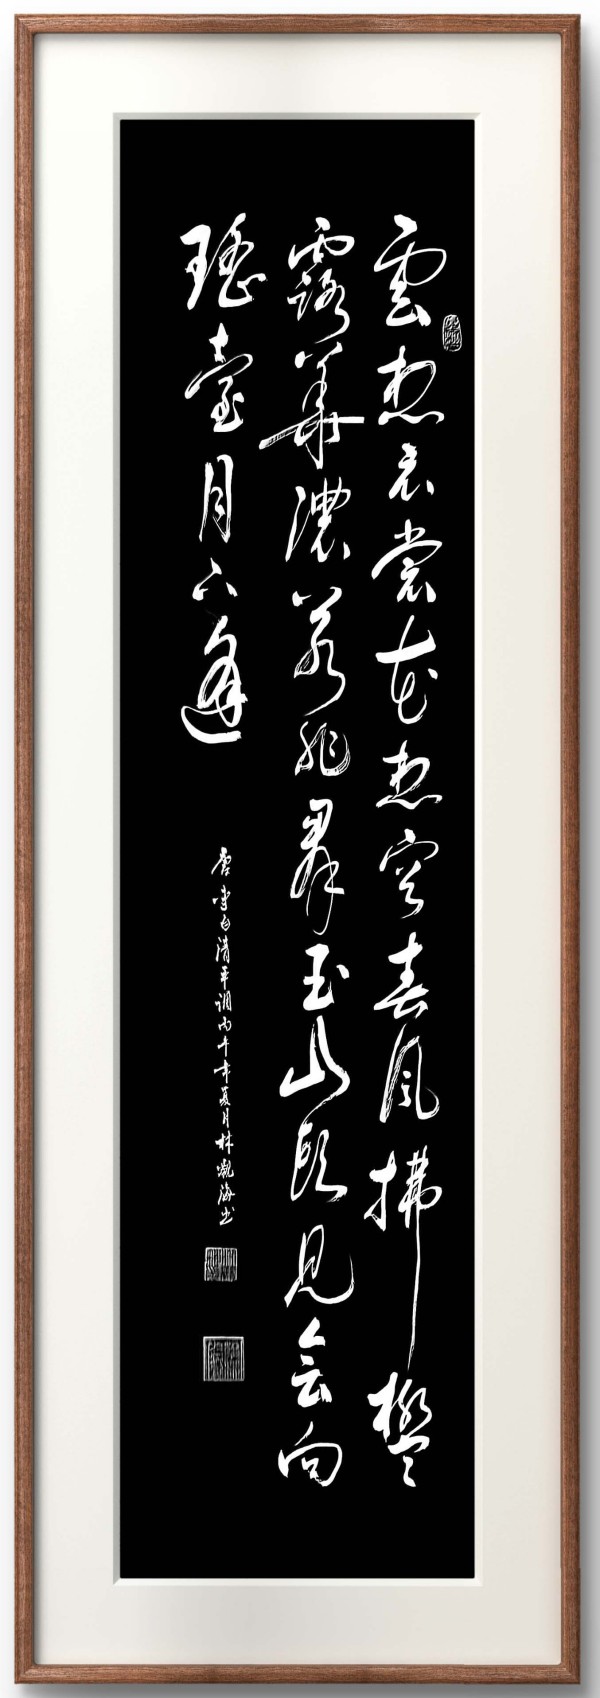 雲想衣裳花想容春風拂檻
露華濃若非羣玉山頭見會向
瑤臺月下逢
唐李白清平調丙午年夏月林海书